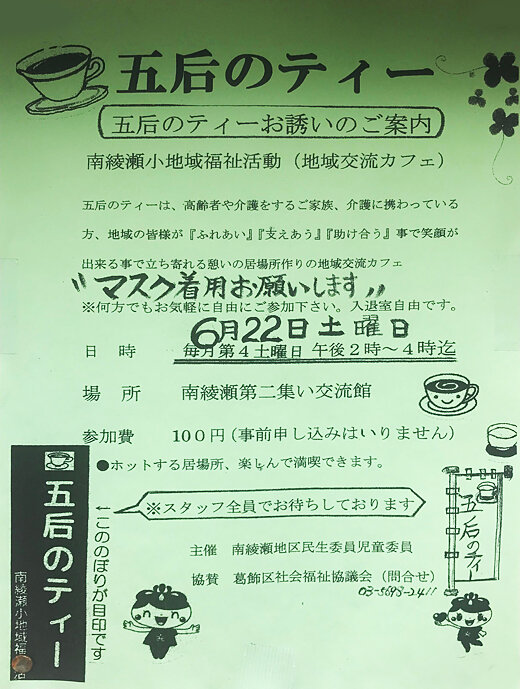 五后のティー
五后のティーお誘いのご案内
南綾瀬小地域福祉活動（地域交流カフェ）
五后のティーは、高齢者や介護をするご家族、介護に携わっている
方、地域の皆様が『ふれあい』『支えあう』『助け合う』事で笑顔が
出来る事で立ち寄れる憩いの居場所作りの地域交流カフェ
"マスク着用お願いします"
※何方でもお気軽に自由にご参加下さい。入退室自由です。
6月22日土曜日
日時 毎月第４土曜日 午後２時～４時迄
場所 南綾瀬第二集い交流館
参加費 １００円（事前申し込みはいりません）
●ホットする居場所、楽しんで満喫できます。
※スタッフ全員でお待ちしております
主催 南綾瀬地区民生委員児童委員
協賛 葛飾区社会福祉協議会（問合せ）
03-5693-2411
五后のティー
南綾瀬小地域福 活
↑こののぼりが目印です
五后のティー